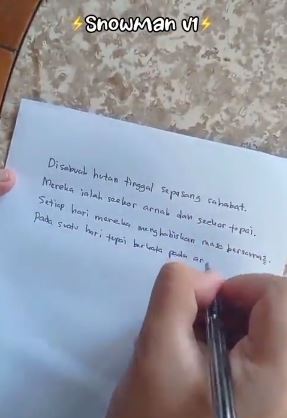 ⚡SnowMan v1⚡
Disabuah hutan tinggal sepasang sahabat.
Mereka ialah seekor arnab dan seekor tupai.
Setiap hari mereka menghabiskan masa bersama2.
Pada suatu hari tupai berkata pada ar